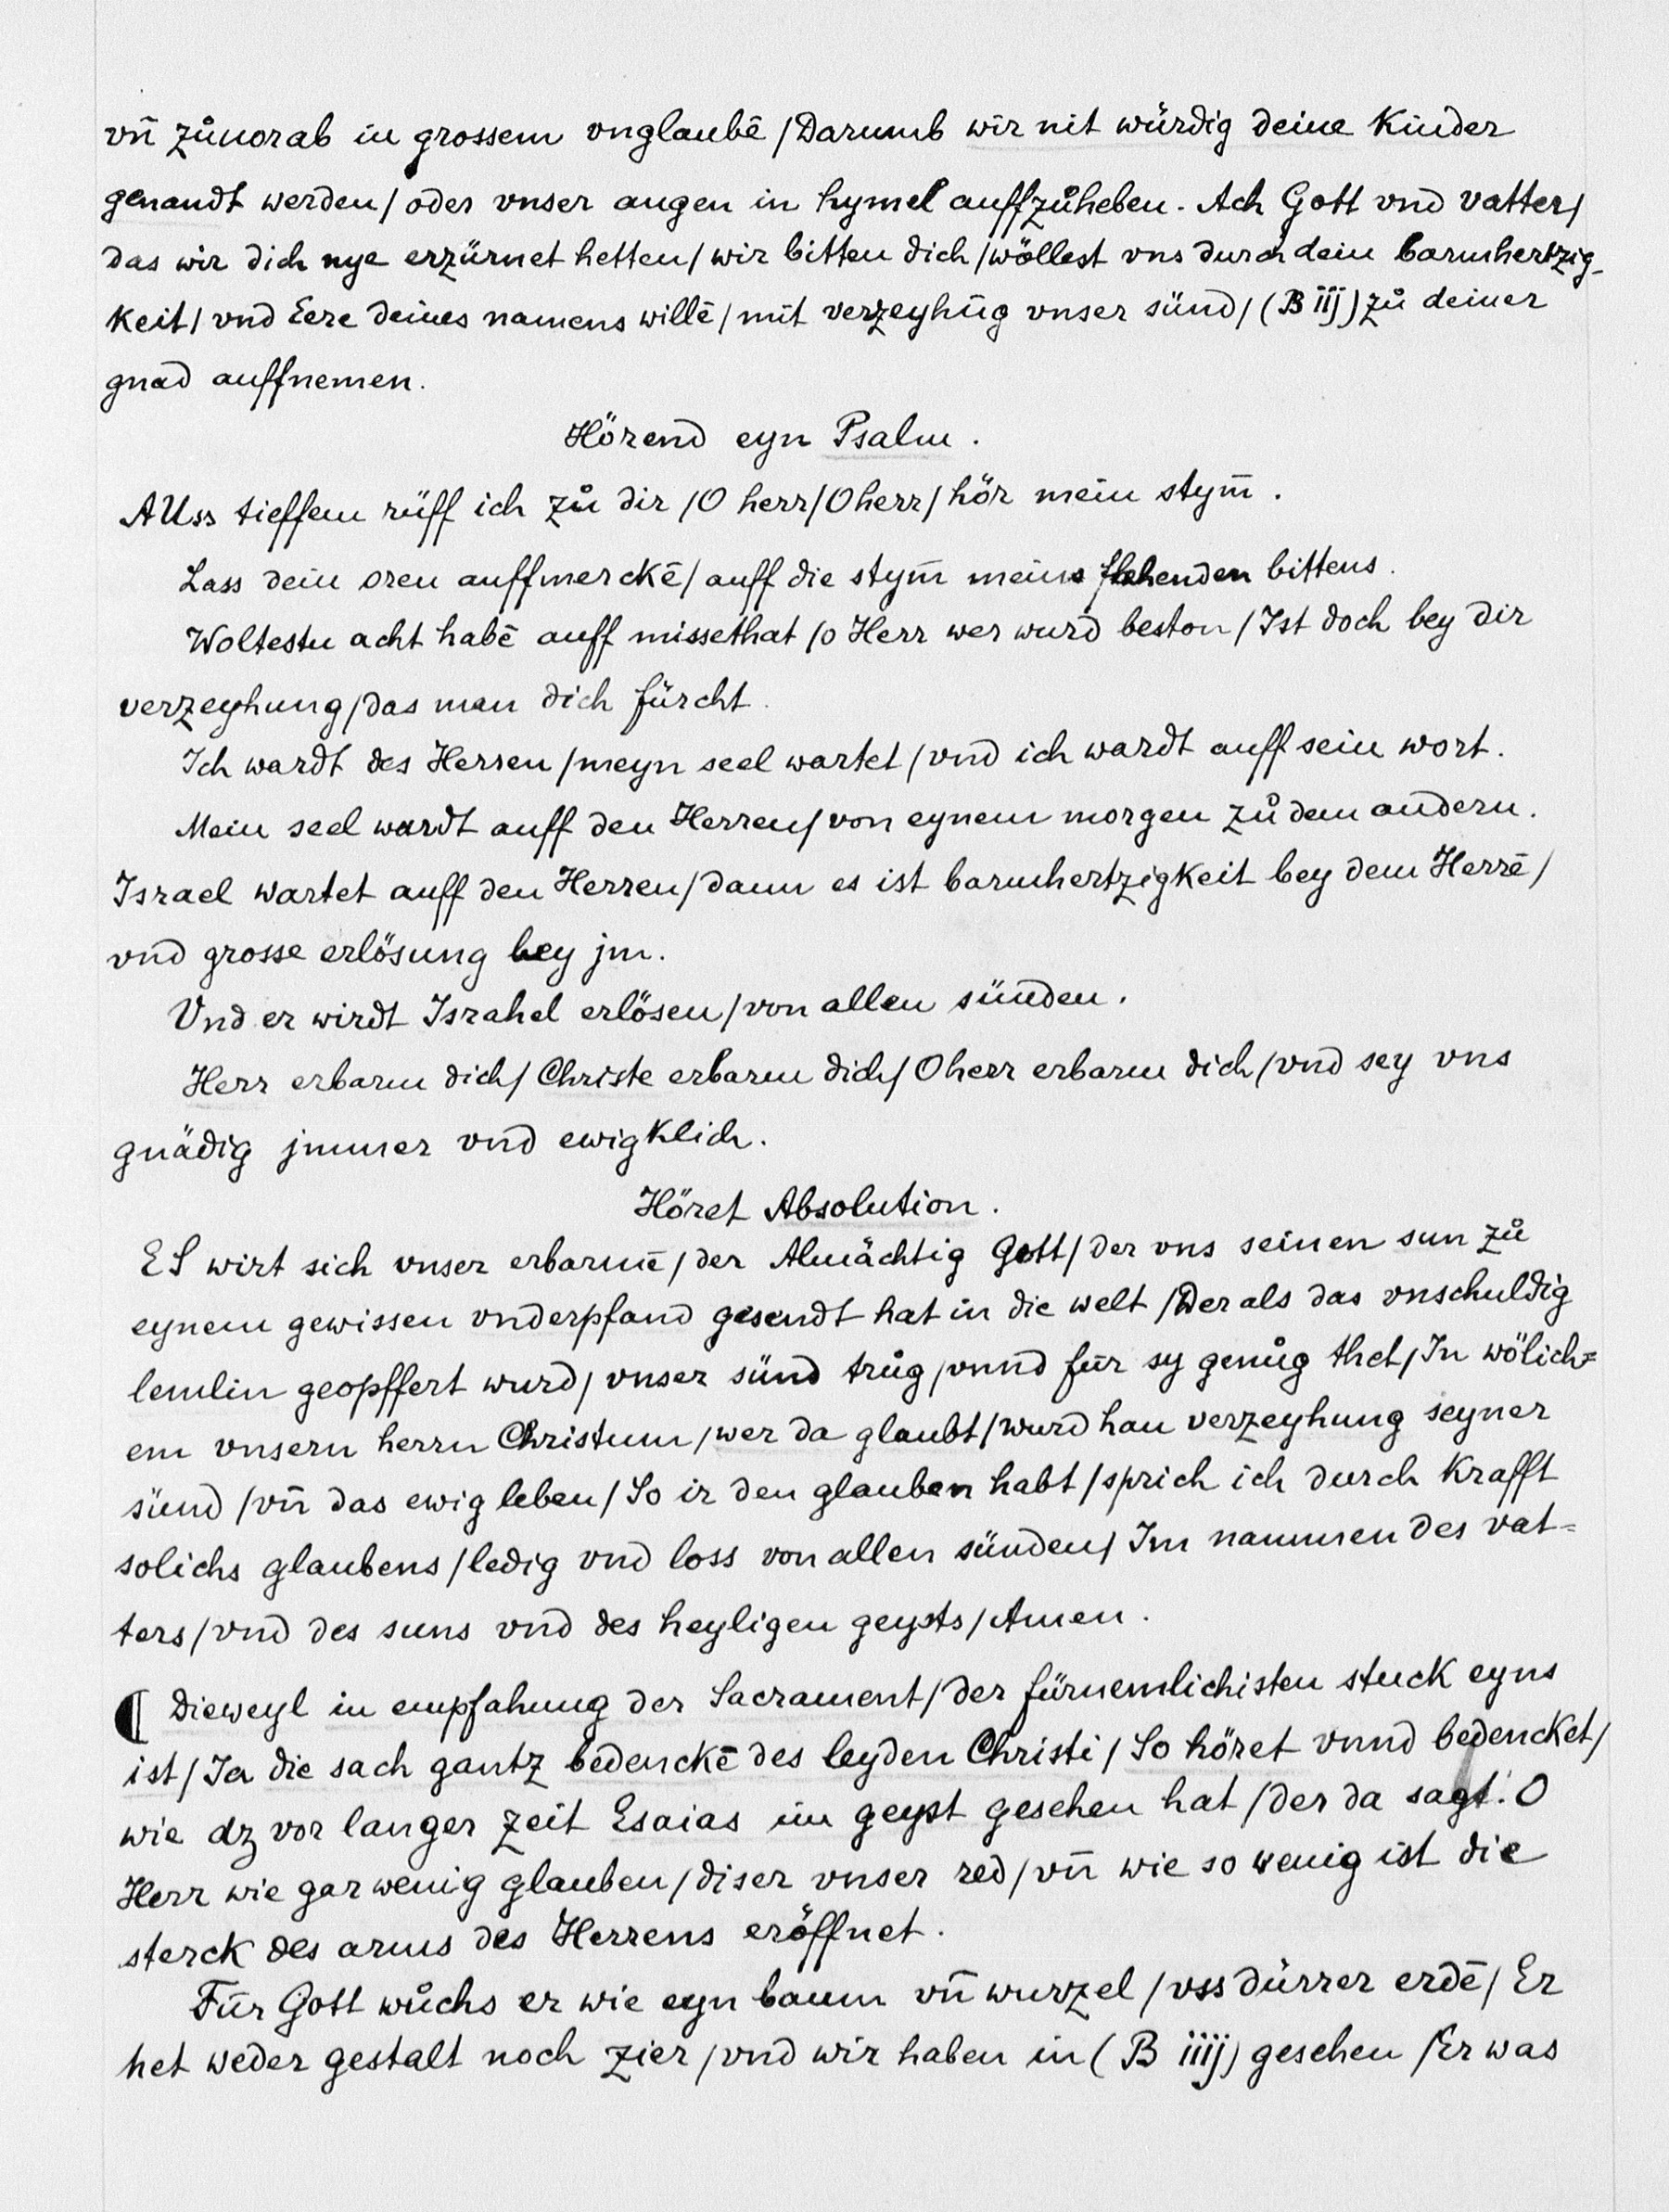 vn̄ zůuorab in grossem vnglaubē / Darumb wir nit würdig deine Kinder
genandt werden / oder vnser augen in hymel auffzůheben. Ach Gott vnd vatter /
das wir dich nye erzürnet hetten / wir bitten dich / wöllest vns durch dein barmhertzig-
keit / vnd Eere deines namens willē / mit verzeyhūg vnser sünd / (B iij) zů deiner
gnad auffnemen.
Hörend eyn Psalm.
AUss tieffem rüff ich zů dir / O herr / O herr / hör mein stym̄.
Lass dein oren auffmerckē / auff die stym̄ meins flehenden bittens.
Woltestu acht habē auff missethat / o Herr wer wurd beston / Ist doch bey dir
verzeyhung / das man dich fürcht.
Ich wardt des Herren / meyn seel wartet / vnd ich wardt auff sein wort.
Mein seel wardt auff den Herren / von eynem morgen zů dem andern.
Israel wartet auff den Herren / dann es ist barmhertzigkeit bey dem Herrē /
vnd grosse erlösung bey jm.
Vnd er wirdt Israhel erlösen / von allen sünden.
Herr erbarm dich / Christe erbarm dich / O herr erbarm dich / vnd sey vns
gnädig jmmer vnd ewigklich.
Höret Absolution.
ES wirt sich vnser erbarmē / der Almächtig Gott / der vns seinen sun zů
eynem gewissen vnderpfand gesendt hat in die welt / Der als das vnschuldig
lemlin geopffert wurd / vnser sünd trůg / vnnd für sy genůg thet / In wölich=
em vnsern herrn Christum / wer da glaubt / wurd han verzeyhung seyner
sünd / vn̄ das ewig leben / So ir den glauben habt / sprich ich durch krafft
solichs glaubens / ledig vnd loss von allen sünden / Im nammen des vat=
ters / vnd des suns vnd des heyligen geysts / Amen.
¶ Dieweyl in empfahung der Sacrament / der fürnemlichisten stuck eyns
ist / Ja die sach gantz bedenckē des leyden Christi / So höret vnnd bedencket /
wie dz vor langer zeit Esaias im geyst gesehen hat / der da sagt: O
Herr wie gar wenig glauben / diser vnser red / vn̄ wie so wenig ist die
sterck des arms des Herrens eröffnet.
Für Gott wůchs er wie eyn baum vn̄ wurzel / vss dürrer erdē / Er
het weder gestalt noch zier / vnd wir haben in (B iiij) gesehen / Er was